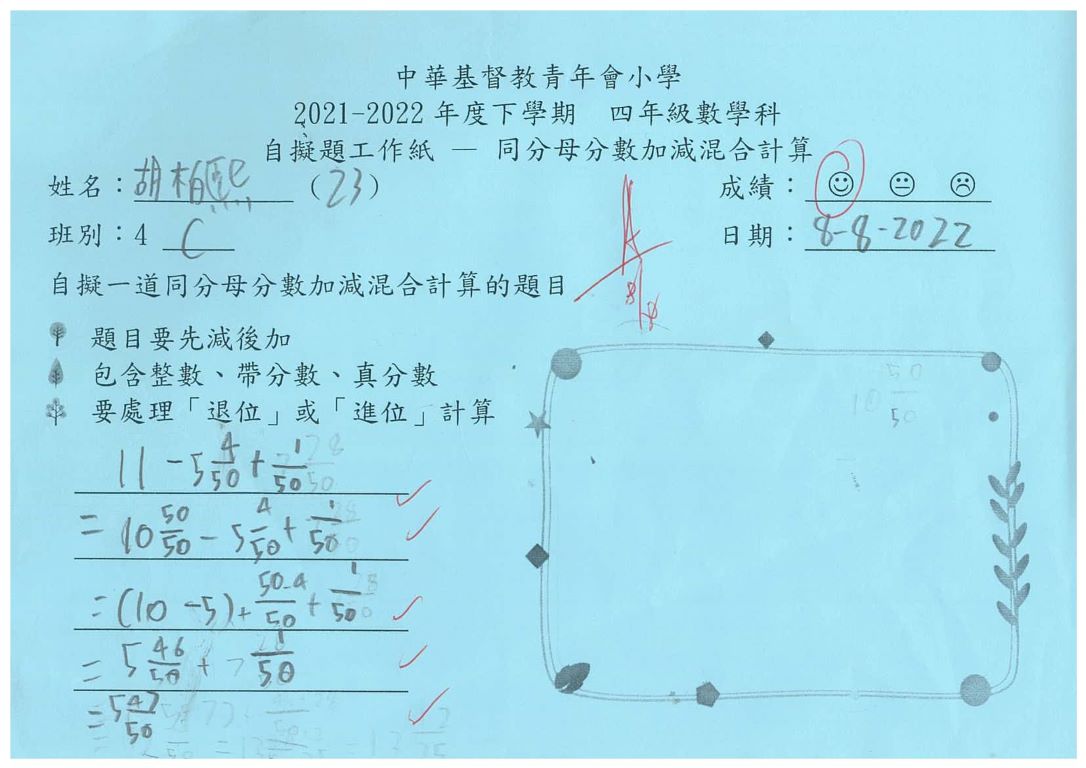 中華基督教青年會小學
2021-2022 年度下學期 四年級數學科
自擬題工作紙 — 同分母分數加減混合計算
姓名：胡柏熙 (23) 成績：
班別：4 C 日期：8-8-2022
A
8/8
自擬一道同分母分數加減混合計算的題目
題目要先減後加
包含整數、帶分數、真分數
要處理「退位」或「進位」計算
11 - 5 4/50 + 1/50
= 10 50/50 - 5 4/50 + 1/50
= (10 - 5) + 50-4/50 + 1/50
= 5 46/50 + 1/50
= 5 47/50